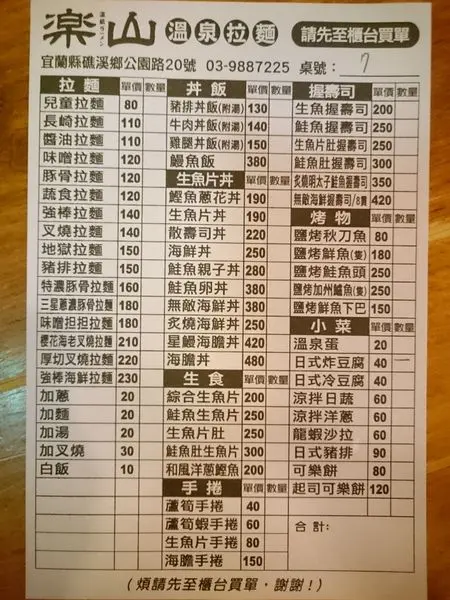 楽山 溫泉拉麵 請先至櫃台買單
宜蘭縣礁溪鄉公園路20號 03-9887225 桌號：7
拉麵 單價 數量
兒童拉麵 80
長崎拉麵 110
醬油拉麵 110
味噌拉麵 120
豚骨拉麵 120
蔬食拉麵 120
強棒拉麵 140
叉燒拉麵 140
地獄拉麵 150
豬排拉麵 150
特濃豚骨拉麵 160
三星蔥濃豚骨拉麵 180
味噌担担拉麵 180
櫻花海老叉燒拉麵 210
厚切叉燒拉麵 220
強棒海鮮拉麵 230
加蔥 20
加麵 20
加湯 20
加叉燒 30
白飯 10
丼飯 單價 數量
豬排丼飯(附湯) 130
牛肉丼飯(附湯) 140
雞腿丼飯(附湯) 150
鰻魚飯 380
生魚片丼 單價 數量
鰹魚蔥花丼 190
生魚片丼 190
散壽司丼 220
海鮮丼 250
鮭魚親子丼 280
鮭魚卵丼 380
無敵海鮮丼 380
炙燒海鮮丼 350
星鰻海膽丼 420
海膽丼 480
生食 單價 數量
綜合生魚片 200
鮭魚生魚片 200
生魚片肚 250
鮭魚肚生魚片 300
和風洋蔥鰹魚 200
手捲 單價 數量
蘆筍手捲 40
蘆筍蝦手捲 60
生魚片手捲 80
海膽手捲 150
握壽司 單價 數量
生魚握壽司 200
鮭魚握壽司 250
生魚片肚握壽司 250
鮭魚肚握壽司 300
炙燒明太子鮭魚握壽司 350
無敵海鮮握壽司/8貫 420
烤物 單價 數量
鹽烤秋刀魚 80
鹽烤鮮魚(隻) 180
鹽烤鮭魚頭 250
鹽烤加州鱸魚(隻) 250
鹽烤鮮魚下巴 150
小菜 單價 數量
溫泉蛋 20
日式炸豆腐 40 一
日式冷豆腐 40
涼拌日蔬 60
涼拌洋蔥 60
龍蝦沙拉 60
日式豬排 90
可樂餅 80
起司可樂餅 120
合計：
(煩請先至櫃台買單，謝謝！)